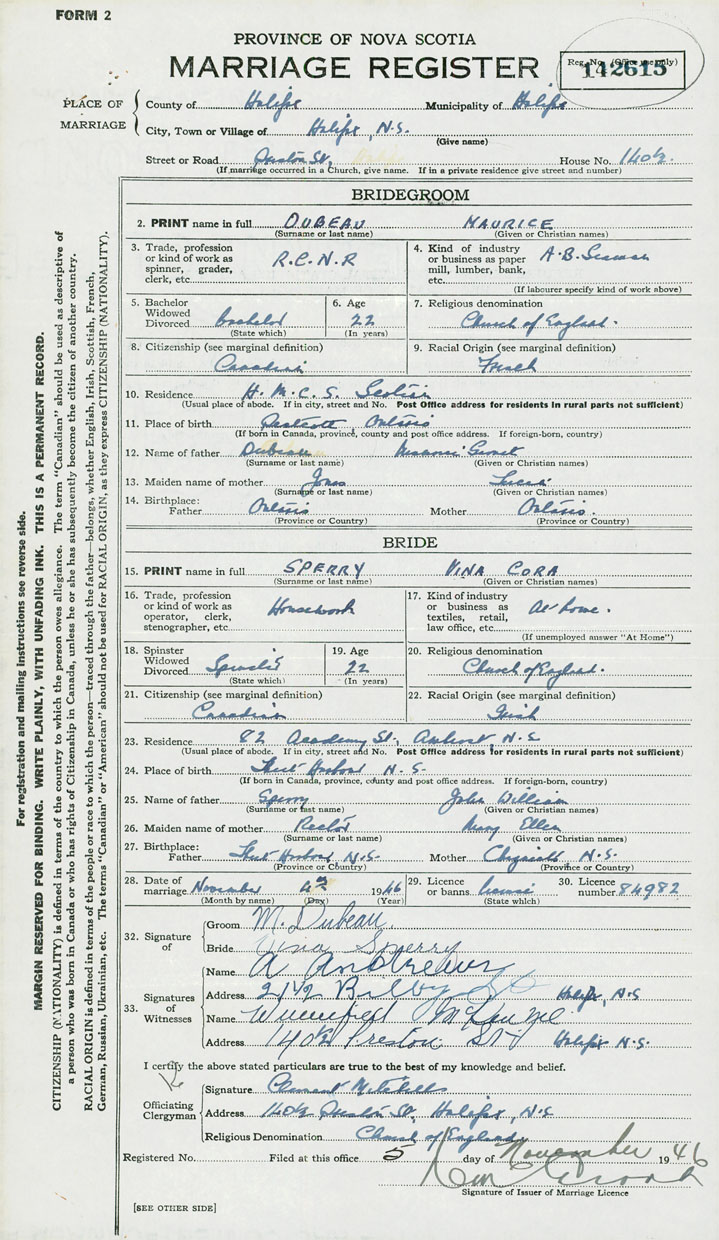 FORM 2
PROVINCE OF NOVA SCOTIA
MARRIAGE REGISTER
Reg. No. (Office use only)
142615
PLACE OF MARRIAGE
County of Halifax Municipality of Halifax
City, Town or Village of Halifax, N.S.
(Give name)
Street or Road Preston St. House No. 140½
(If marriage occurred in a Church, give name. If in a private residence give street and number)
BRIDEGROOM
2. PRINT name in full DUBEAU MAURICE
(Surname or last name) (Given or Christian names)
3. Trade, profession or kind of work as spinner, grader, clerk, etc. R.C.N.R
4. Kind of industry or business as paper mill, lumber, bank, etc. A.B. Seaman
(If labourer specify kind of work above)
5. Bachelor Widowed Divorced bachelor
(State which)
6. Age 22
(In years)
7. Religious denomination Church of England.
8. Citizenship (see marginal definition) Canadian
9. Racial Origin (see marginal definition) French
10. Residence H.M.C.S. Scotian
(Usual place of abode. If in city, street and No. Post Office address for residents in rural parts not sufficient)
11. Place of birth Prescott Ontario
(If born in Canada, province, county and post office address. If foreign-born, country)
12. Name of father Dubeau
(Surname or last name) (Given or Christian names)
13. Maiden name of mother Jones
(Surname or last name) (Given or Christian names)
14. Birthplace: Father Ontario Mother Ontario.
(Province or Country) (Province or Country)
BRIDE
15. PRINT name in full SPERRY VINA CORA
(Surname or last name) (Given or Christian names)
16. Trade, profession or kind of work as operator, clerk, stenographer, etc. Housework
17. Kind of industry or business as textiles, retail, law office, etc. At home.
(If unemployed answer "At Home")
18. Spinster Widowed Divorced Spinster
(State which)
19. Age 22
(In years)
20. Religious denomination Church of England.
21. Citizenship (see marginal definition) Canadian
22. Racial Origin (see marginal definition) Irish
23. Residence 82 Academy St., Amherst N.S.
(Usual place of abode. If in city, street and No. Post Office address for residents in rural parts not sufficient)
24. Place of birth Harbour N.S.
(If born in Canada, province, county and post office address. If foreign-born, country)
25. Name of father Sperry John William
(Surname or last name) (Given or Christian names)
26. Maiden name of mother Rector Mary Ellen
(Surname or last name) (Given or Christian names)
27. Birthplace: Father Harbour, N.S. Mother N.S.
(Province or Country) (Province or Country)
28. Date of marriage November 4th 1946
(Month by name) (Day) (Year)
29. Licence or banns license
(State which)
30. Licence number 84982
32. Signature of
Groom M. Dubeau.
Bride Vina Sperry
33. Signatures of Witnesses
Name A Andrews
Address 21½ Bilby St Halifax, N.S
Name Winnifred
Address 140½ Preston ST Halifax N.S.
I certify the above stated particulars are true to the best of my knowledge and belief.
Officiating Clergyman
Signature Clement Mitchell
Address 140½ Preston St, Halifax, N.S
Religious Denomination Church of England
Registered No. Filed at this office 5 day of November 1946
Signature of Issuer of Marriage Licence
[SEE OTHER SIDE]
For registration and mailing instructions see reverse side.
MARGIN RESERVED FOR BINDING. WRITE PLAINLY, WITH UNFADING INK. THIS IS A PERMANENT RECORD.
CITIZENSHIP (NATIONALITY) is defined in terms of the country to which the person owes allegiance. The term "Canadian" should be used as descriptive of
a person who was born in Canada or who has rights of Citizenship in Canada, unless he or she has subsequently become the citizen of another country.
RACIAL ORIGIN is defined in terms of the people or race to which the person—traced through the father—belongs, whether English, Irish, Scottish, French,
German, Russian, Ukrainian, etc. The terms "Canadian" or "American" should not be used for RACIAL ORIGIN, as they express CITIZENSHIP (NATIONALITY).